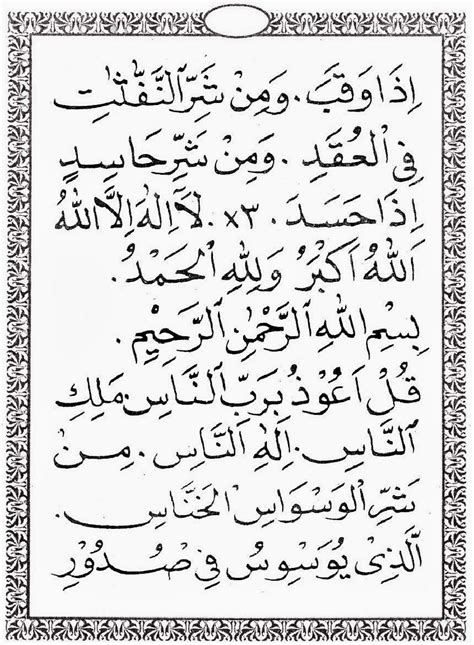 اِذَا وَقَبَ . وَمِنْ شَرِّ النَّفّٰثٰتِ
فِى الْعُقَدِ . وَمِنْ شَرِّ حَاسِدٍ
اِذَا حَسَدَ . ×٣ . لَآ اِلٰهَ اِلَّا اللهُ
اَللهُ اَكْبَرُ وَلِلّٰهِ الْحَمْدُ .
بِسْمِ اللهِ الرَّحْمٰنِ الرَّحِيْمِ .
قُلْ اَعُوْذُ بِرَبِّ النَّاسِ . مَلِكِ
النَّاسِ . اِلٰهِ النَّاسِ . مِنْ
شَرِّ الْوَسْوَاسِ الْخَنَّاسِ .
الَّذِىْ يُوَسْوِسُ فِى صُدُوْرِ